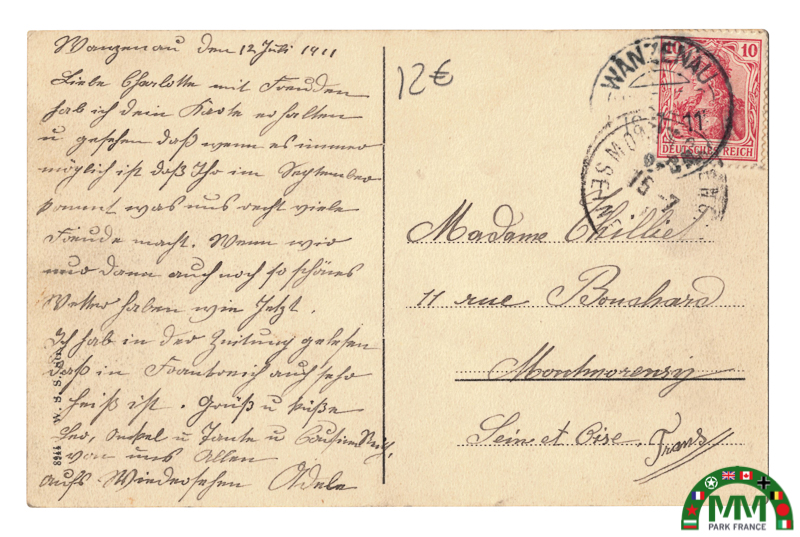 Wanzenau den 12 Juli 1911
Liebe Charlotte mit Freuden
hab ich dein Karte erhalten
u gesehen daß wenn es immer
möglich ist daß Ihr im September
kommt was uns recht viele
Freude macht. Wenn wir
nur dann auch noch so schönes
Wetter haben wie Jetzt.
Ich hab in der Zeitung gelesen
daß in Frankreich auch sehr
heiß ist. Grüß u Küße
Leo, Onkel u Tante u Cousine
von uns Allen
aufs Wiedersehen Adele
W. S. S. B.
8944
12€
WANZENAU
10
DEUTSCHES REICH
11
15 - 7
Madame
11 rue Bouchard
Montmorenziy
Sein et Oise. Frans
MM
PARK FRANCE